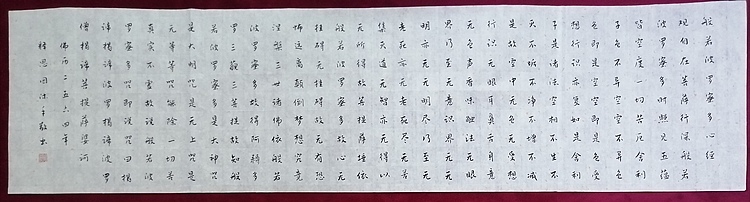 般若波羅蜜多心經
观自在菩薩行深般若
波羅蜜多時照見五蕴
皆空度一切苦厄舍利
子色不异空空不异色
色即是空空即是色受
想行识亦复如是舍利
子是諸法空相不生不
灭不垢不净不增不减
是故空中无色无受想
行识无眼耳鼻舌身意
无色声香味触法无眼
界乃至无意识界无无
明亦无无明尽乃至无
老死亦无老死尽无苦
集灭道无智亦无得以
无所得故菩提薩埵依
般若波羅蜜多故心无
挂碍无挂碍故无有恐
怖远离顛倒梦想究竟
涅槃三世諸佛依般若
波羅蜜多故得阿耨多
羅三藐三菩提故知般
若波羅蜜多是大神咒
是大明咒是无上咒是
无等等咒能除一切苦
真实不虚故说般若波
羅蜜多咒即说咒曰揭
諦揭諦波羅揭諦波羅
僧揭諦菩提薩婆訶
佛历二五六四年